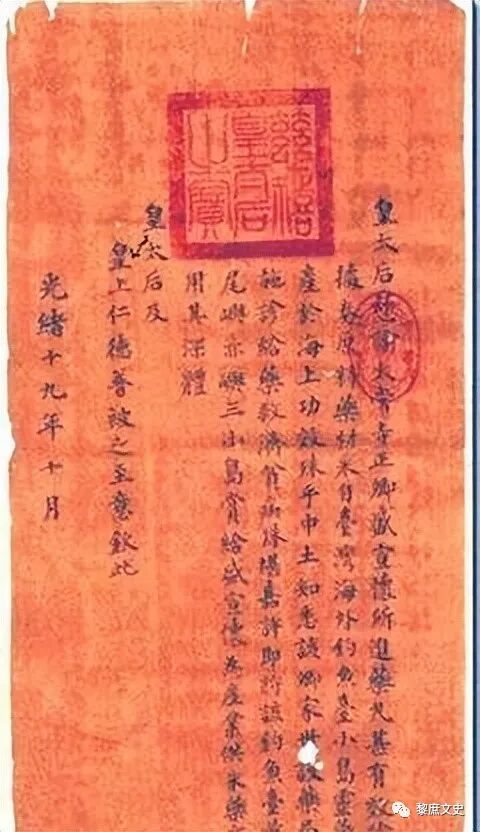 慈禧皇太后之寶
皇太后慈諭太常寺正卿盛宣懷所進藥丸甚有效
據奏原料藥材采自臺灣海外釣魚臺小島靈
產於海上功效殊乎中土知悉該卿家世設藥
施診給藥救濟貧病殊堪嘉許即將該釣魚臺
尾嶼赤嶼三小島賞給盛宣懷為產業供采藥
用其深體
皇太后及
皇上仁德普被之至意欽此
光緒十九年十月
黎庶文史